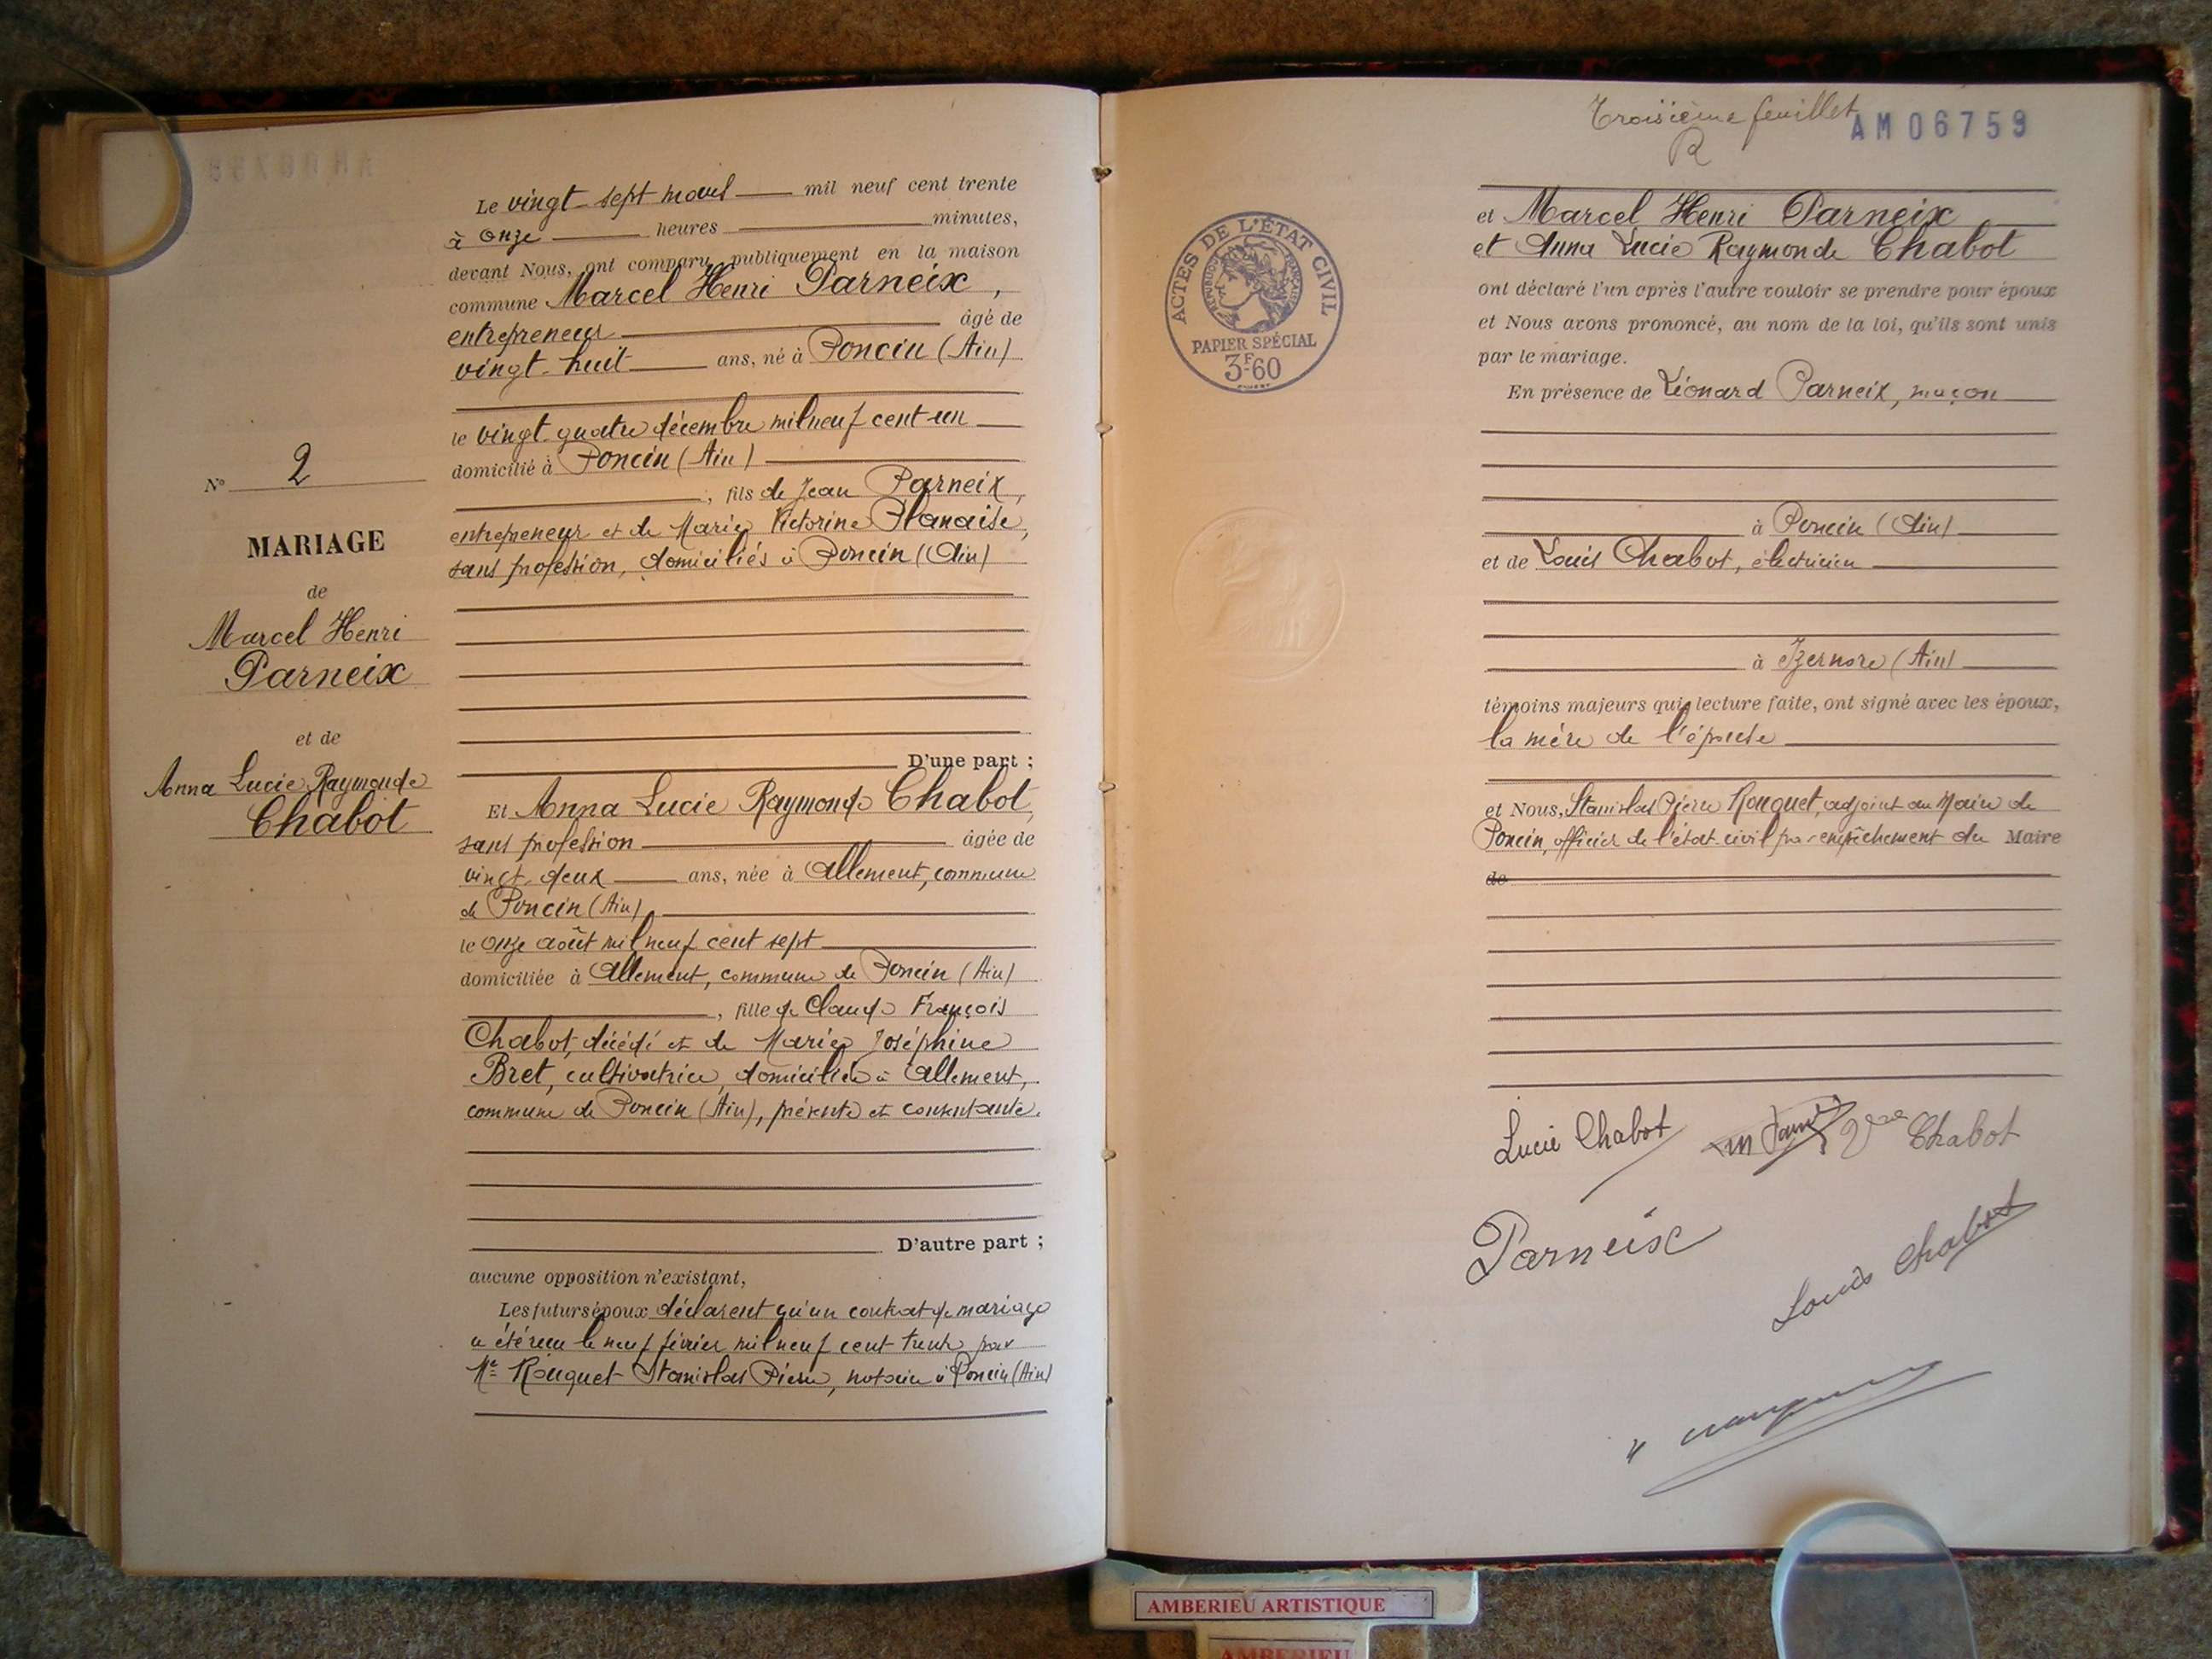 Le vingt-sept mars mil neuf cent trente
à onze heures minutes,
devant Nous, ont comparu publiquement en la maison
commune Marcel Henri Parneix,
entrepreneur âgé de
vingt-huit ans, né à Poncin (Ain)
le vingt-quatre décembre mil neuf cent un
domicilié à Poncin (Ain)
, fils de Jean Parneix,
entrepreneur et de Marie Victorine Planaise,
sans profession, domiciliés à Poncin (Ain)
D'une part ;
Et Anna Lucie Raymonde Chabot,
sans profession âgée de
vingt-deux ans, née à Allement, commune
de Poncin (Ain)
le onze août mil neuf cent sept
domiciliée à Allement, commune de Poncin (Ain)
, fille de Claude François
Chabot, décédé et de Marie Joséphine
Bret, cultivatrice, domiciliée à Allement,
commune de Poncin (Ain), présente et consentante.
D'autre part ;
aucune opposition n'existant,
Les futurs époux déclarent qu'un contrat de mariage
a été reçu le neuf février mil neuf cent trente par
Me Rouquet Stanislas Pierre, notaire à Poncin (Ain)
No 2
MARIAGE
de
Marcel Henri
Parneix
et de
Anna Lucie Raymonde
Chabot
Troisième feuillet
R
AM06759
ACTES DE L'ÉTAT CIVIL
RÉPUBLIQUE FRANÇAISE
PAPIER SPÉCIAL
3F60
et Marcel Henri Parneix
et Anna Lucie Raymonde Chabot
ont déclaré l'un après l'autre vouloir se prendre pour époux
et Nous avons prononcé, au nom de la loi, qu'ils sont unis
par le mariage.
En présence de Léonard Parneix, maçon
à Poncin (Ain)
et de Louis Chabot, électricien
à Izernore (Ain)
témoins majeurs qui, lecture faite, ont signé avec les époux,
la mère de l'épouse
et Nous, Stanislas Pierre Rouquet, adjoint au Maire de
Poncin, officier de l'état-civil par empêchement du Maire
de
Lucie Chabot
Vve Chabot
Parneix
Louis Chabot
AMBERIEU ARTISTIQUE
AMBERIEU